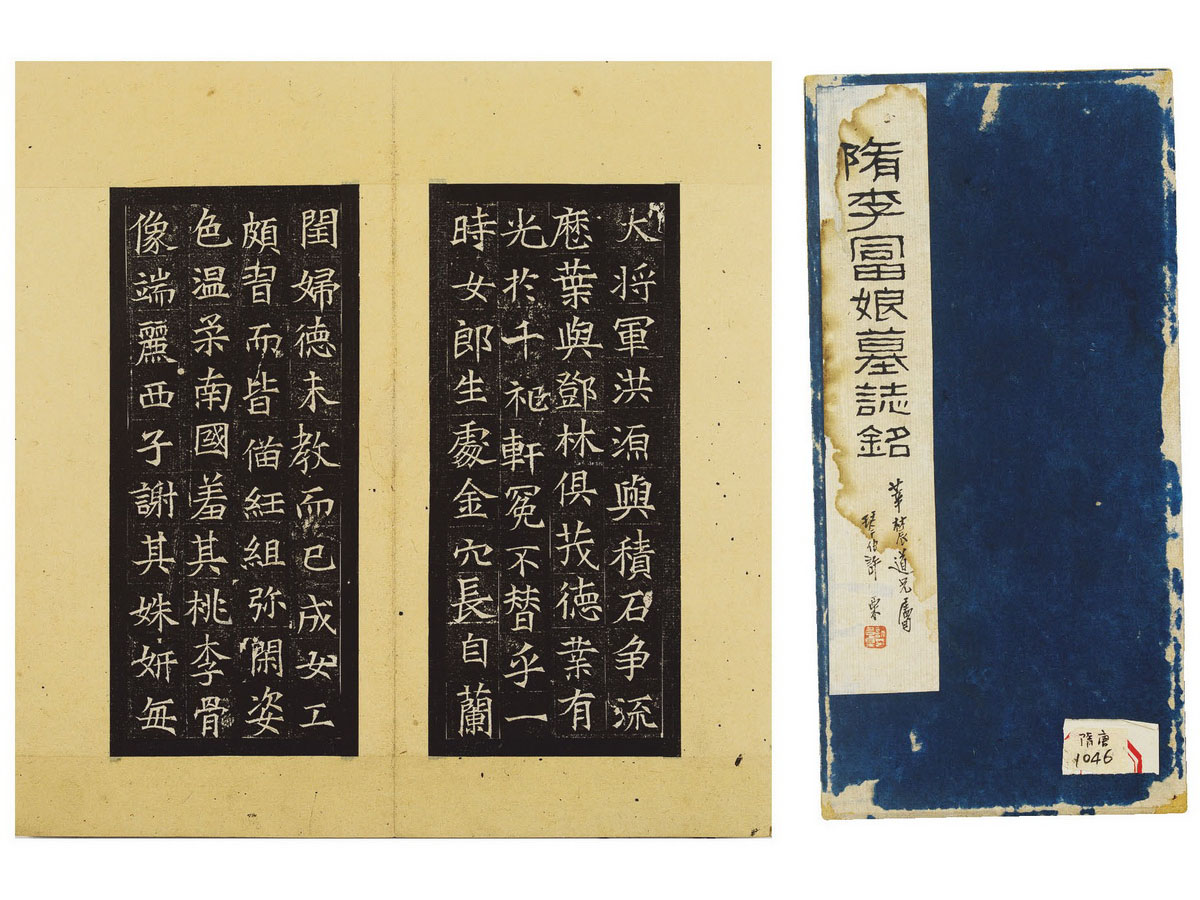 隋李富娘墓誌銘
道兄屬
隋唐
1046
大将軍洪源與積石争流
歷葉與鄧林俱茂德業有
光於千祀軒冕不替乎一
時女郎生處金穴長自蘭
閨婦德未教而已成女工
頗習而皆僃紝組弥閑姿
色温柔南國羞其桃李骨
像端麗西子謝其姝妍無